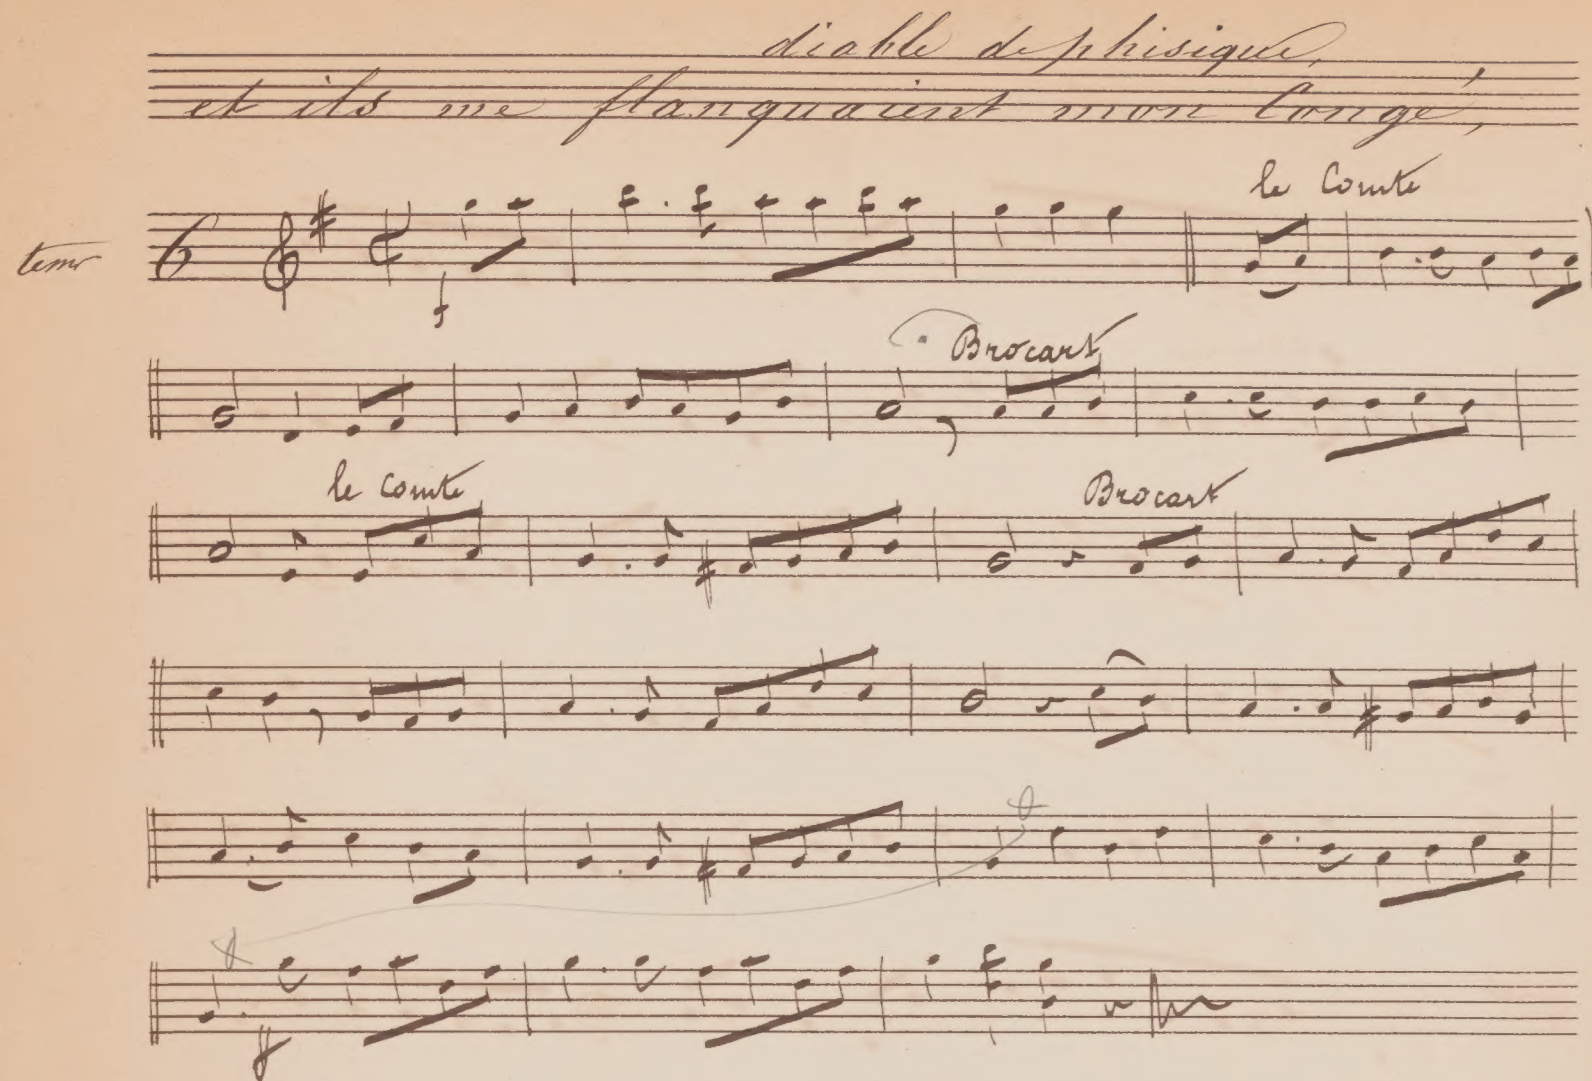 diable de phisique,
et ils me flanquaient mon Congé,
6
le Comte
f
Brocart
le Comte
Brocart
f